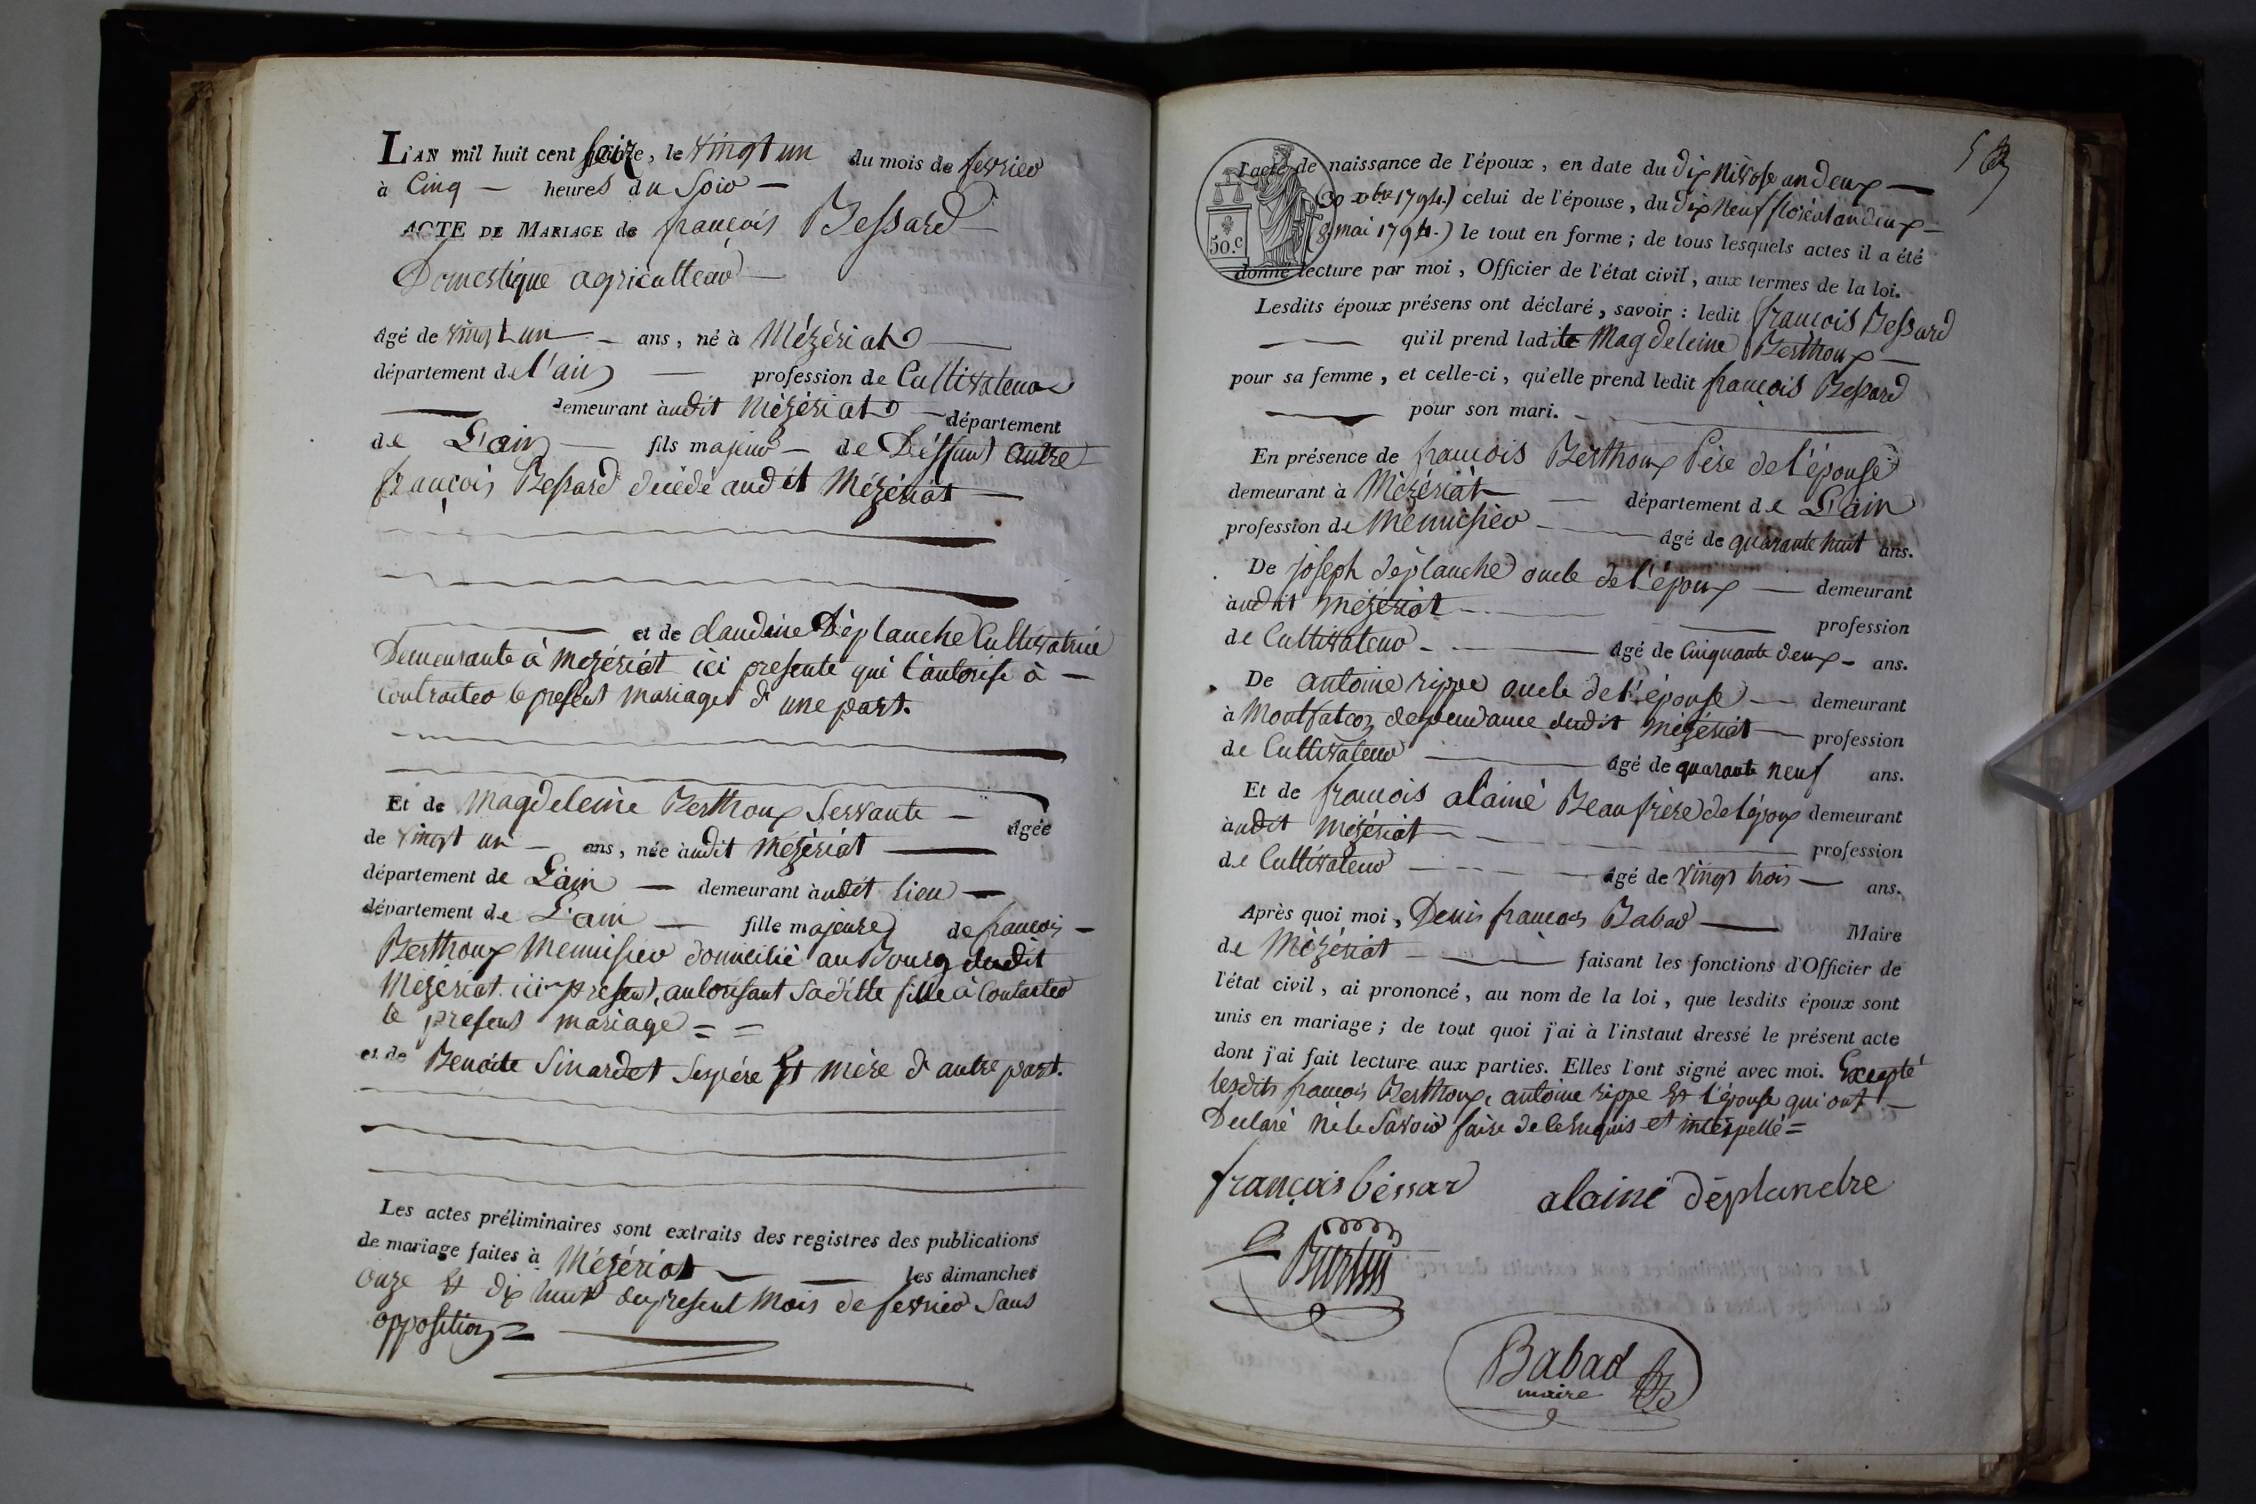 L'AN mil huit cent seize, le vingt un du mois de fevrier
à Cinq — heures du Soir —
ACTE DE MARIAGE de françois Bessard —
Domestique agriculteur —
Agé de vingt un — ans, né à Mézériat —
département de l'ain — profession de Cultivateur
— demeurant audit Mézériat — département
de L'ain — fils majeur — de Déffunt autre
françois Bessard décédé audit Mézériat —
et de claudine Déplanche Cultivatrice
Demeurante à Mézériat ici presente qui l'autorise à —
Contracter le present mariage d'une part.
Et de Magdeleine Berthoux Servante — Agée
de vingt un — ans, née audit Mézériat —
département de L'ain — demeurant audit lieu —
département de L'ain — fille majeure de françois —
Berthoux Menuisier domicilié au Bourg dudit
Mézériat ici present, autorisant sa ditte fille à Contracter
le present mariage = =
et de Benoite Sinardet ses père Et mère d'autre part.
Les actes préliminaires sont extraits des registres des publications
de mariage faites à Mézériat — les dimanches
onze Et dix huit du present Mois de fevrier Sans
opposition
50.c
l'acte de naissance de l'époux, en date du dix Nivose an deux —
(30 xbre 1794.) celui de l'épouse, du dix Neuf floréal an deux —
(8 mai 1794.) le tout en forme ; de tous lesquels actes il a été
donné lecture par moi, Officier de l'état civil, aux termes de la loi.
Lesdits époux présens ont déclaré, savoir : ledit françois Bessard
— qu'il prend ladite Magdeleine Berthoux —
pour sa femme, et celle-ci, qu'elle prend ledit françois Bessard
— pour son mari. —
En présence de françois Berthoux Père de l'épouse
demeurant à Mézériat — département de L'ain
profession de Menuisier — Agé de quarante huit ans.
De joseph déplanche oncle de l'époux — demeurant
audit Mézériat — profession
de Cultivateur — Agé de Cinquante deux — ans.
De antoine rippe oncle de l'épouse — demeurant
à Montfalcon dependance dudit Mézériat — profession
de Cultivateur — Agé de quarante neuf ans.
Et de françois alainé Beau frère de l'époux demeurant
audit Mézériat — profession
de Cultivateur — Agé de vingt trois — ans.
Après quoi moi, Denis françois Babad — Maire
de Mézériat — faisant les fonctions d'Officier de
l'état civil, ai prononcé, au nom de la loi, que lesdits époux sont
unis en mariage ; de tout quoi j'ai à l'instant dressé le présent acte
dont j'ai fait lecture aux parties. Elles l'ont signé avec moi. Excepté
lesdits françois Berthoux, antoine rippe Et l'épouse qui ont —
Declaré ne le Savoir faire de ce requis et interpellé =
françois bessar alainé déplanche
Babad
maire